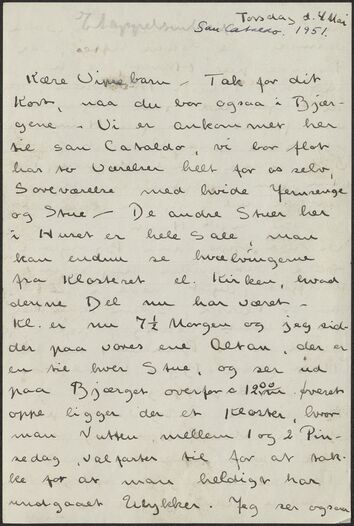 Torsdag d. 4 Mai
San Cataldo. 1951.
Kære Vinnebarn – Tak for dit
Kort, naa du bor ogsaa i Bjær-
gene – Vi er ankommet her
til San Cataldo, vi bor flot
har to Værelser helt for os selv,
Soveværelse med hvide Jernsenge
og Stue – De andre Stuer her
i Huset er hele Sale, man
kan endnu se hvælvingerne
fra Klosteret el. Kirken, hvad
denne Del nu har været –
Kl. er nu 7½ Morgen og jeg sid-
der paa vores ene Altan, der er
en til hver Stue, og ser ud
paa Bjærget overfor
oppe ligger der et Kloster, hvor
man Natten mellem 1 og 2 Pin-
sedag, valfarter til for at tak-
ke for at man heldigt har
undgaaet Ulykker. Jeg ser ogsaa